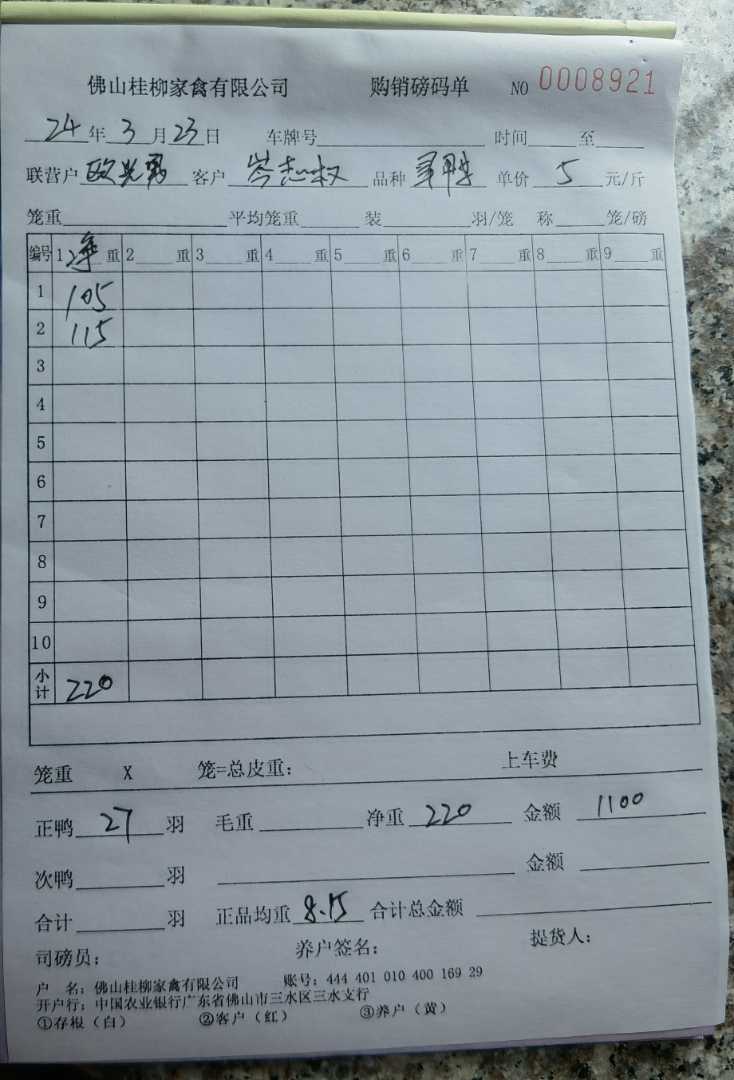 佛山桂柳家禽有限公司 购销磅码单 NO 0008921
24年3月23日 车牌号 时间 至
联营户 欧 客户 岑志权 品种 单价 5 元/斤
笼重 平均笼重 装 羽/笼 称 笼/磅
编号 1 净 重 2 重 3 重 4 重 5 重 6 重 7 重 8 重 9 重
1 105
2 115
3
4
5
6
7
8
9
10
小计 220
笼重 X 笼=总皮重: 上车费
正鸭 27 羽 毛重 净重 220 金额 1100
次鸭 羽 金额
合计 羽 正品均重 8.15 合计总金额
司磅员: 养户签名: 提货人:
户 名: 佛山桂柳家禽有限公司 账号: 444 401 010 400 169 29
开户行: 中国农业银行广东省佛山市三水区三水支行
①存根(白) ②客户(红) ③养户(黄)